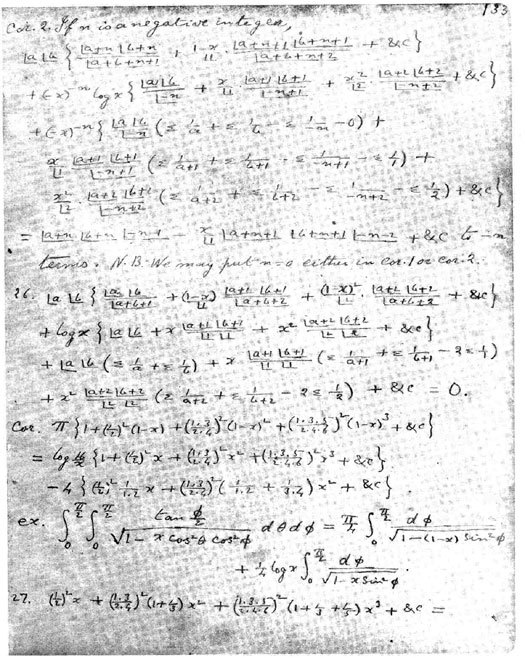 133
Cor. 2. If n is a negative integer,
|a |b { |a+n |b+n / |a+b+n+1 + (1-x)/|1 · |a+n+1 |b+n+1 / |a+b+n+2 + &c }
+ (-x)^{-n} log x { |a |b / |-n + x/|1 · |a+1 |b+1 / |-n+1 + x²/|2 · |a+2 |b+2 / |-n+2 + &c }
+ (-x)^{-n} { |a |b / |-n (Σ 1/a + Σ 1/b - Σ 1/-n - 0) +
x/|1 · |a+1 |b+1 / |-n+1 (Σ 1/a+1 + Σ 1/b+1 - Σ 1/-n+1 - Σ 1/1) +
x²/|2 · |a+2 |b+2 / |-n+2 (Σ 1/a+2 + Σ 1/b+2 - Σ 1/-n+2 - Σ 1/2) + &c }
= |a+n |b+n |-n-1 - x/|1 |a+n+1 |b+n+1 |-n-2 + &c to -n
terms. N.B. We may put n=0 either in cor. 1 or cor. 2.
26. |a |b { |a |b / |a+b+1 + (1-x)/|1 · |a+1 |b+1 / |a+b+2 + (1-x)²/|2 · |a+2 |b+2 / |a+b+3 + &c }
+ log x { |a |b + x |a+1 |b+1 / |1 |1 + x² |a+2 |b+2 / |2 |2 + &c }
+ |a |b (Σ 1/a + Σ 1/b) + x |a+1 |b+1 / |1 |1 (Σ 1/a+1 + Σ 1/b+1 - 2Σ 1/1)
+ x² |a+2 |b+2 / |2 |2 (Σ 1/a+2 + Σ 1/b+2 - 2Σ 1/2) + &c = 0.
Cor. π { 1 + (1/2)² (1-x) + (1·3/2·4)² (1-x)² + (1·3·5/2·4·6)² (1-x)³ + &c }
= log 16/x { 1 + (1/2)² x + (1·3/2·4)² x² + (1·3·5/2·4·6)² x³ + &c }
- 4 { (1/2)² 1/1·2 x + (1·3/2·4)² (1/1·2 + 1/3·4) x² + &c }
ex. ∫_0^{π/2} ∫_0^{π/2} tan φ/2 / √(1 - x cos²θ cos²φ) dθ dφ = π/4 ∫_0^{π/2} dφ / √(1-(1-x) sin²φ)
+ 1/4 log x ∫_0^{π/2} dφ / √(1-x sin²φ).
27. (1/2)² x + (1·3/2·4)² (1+1/3) x² + (1·3·5/2·4·6)² (1+1/3+1/5) x³ + &c =